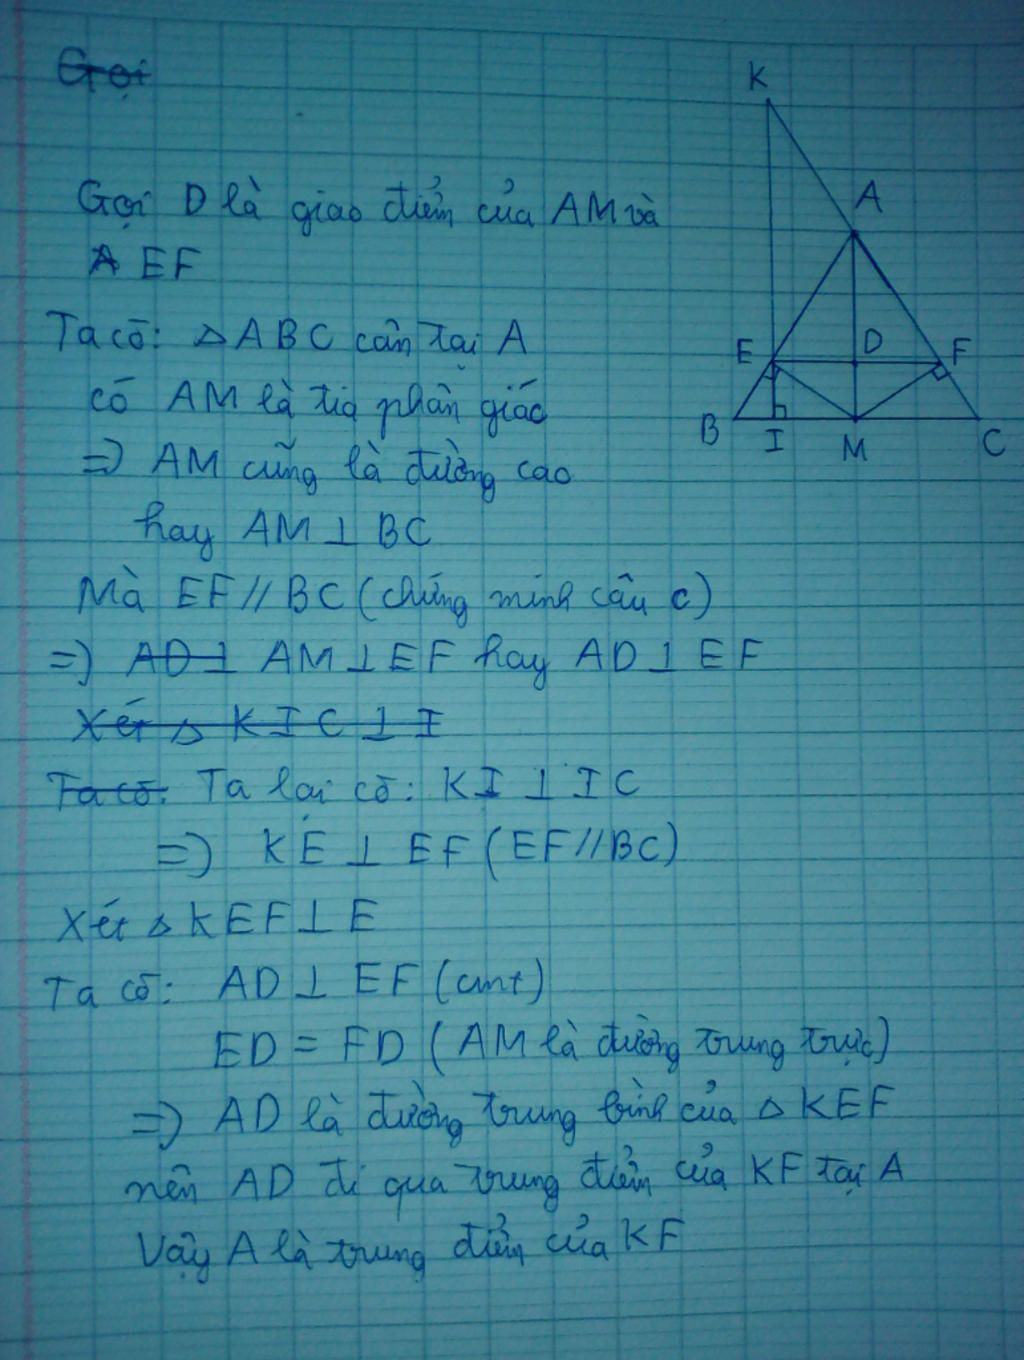 Gọi
Gọi D là giao điểm của AM và
A EF
Ta có: △ABC cân tại A
có AM là tia phân giác
=) AM cũng là đường cao
hay AM ⊥ BC
Mà EF // BC (chứng minh câu c)
=) AD ⊥ AM ⊥ EF hay AD ⊥ EF
Xét △ KIC ⊥ I
Ta có: Ta lại có: KI ⊥ IC
=) KE ⊥ EF (EF // BC)
Xét △ KEF ⊥ E
Ta có: AD ⊥ EF (cmt)
ED = FD (AM là đường trung trực)
=) AD là đường trung bình của △ KEF
nên AD đi qua trung điểm của KF tại A
Vậy A là trung điểm của KF
K
A
E D F
B I M C